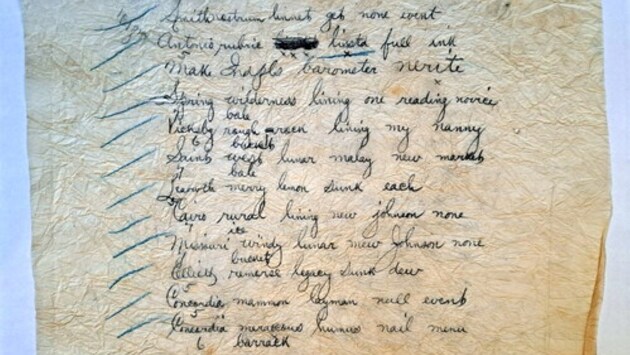 Smith nostrum linnet get none event
Antonio rubric lissta full ink
Make Indpls barometer nerite
Spring wilderness lining one reading novice
bale
Vicksbg rough rack lining my nanny
6 bucket
Saints west lunar malay new market
bale
Leavwth merry lemon sunk each
Cairo rural lining new johnson none
ice
Missouri windy lunar mew Johnson none
bucket
legacy sunk dew
5
Concordia mammon layman null events
5
Concordia humus nail menu
6 barrack